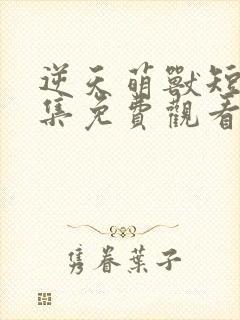 逆天萌獸短
集免費觀看
隽眷葉子